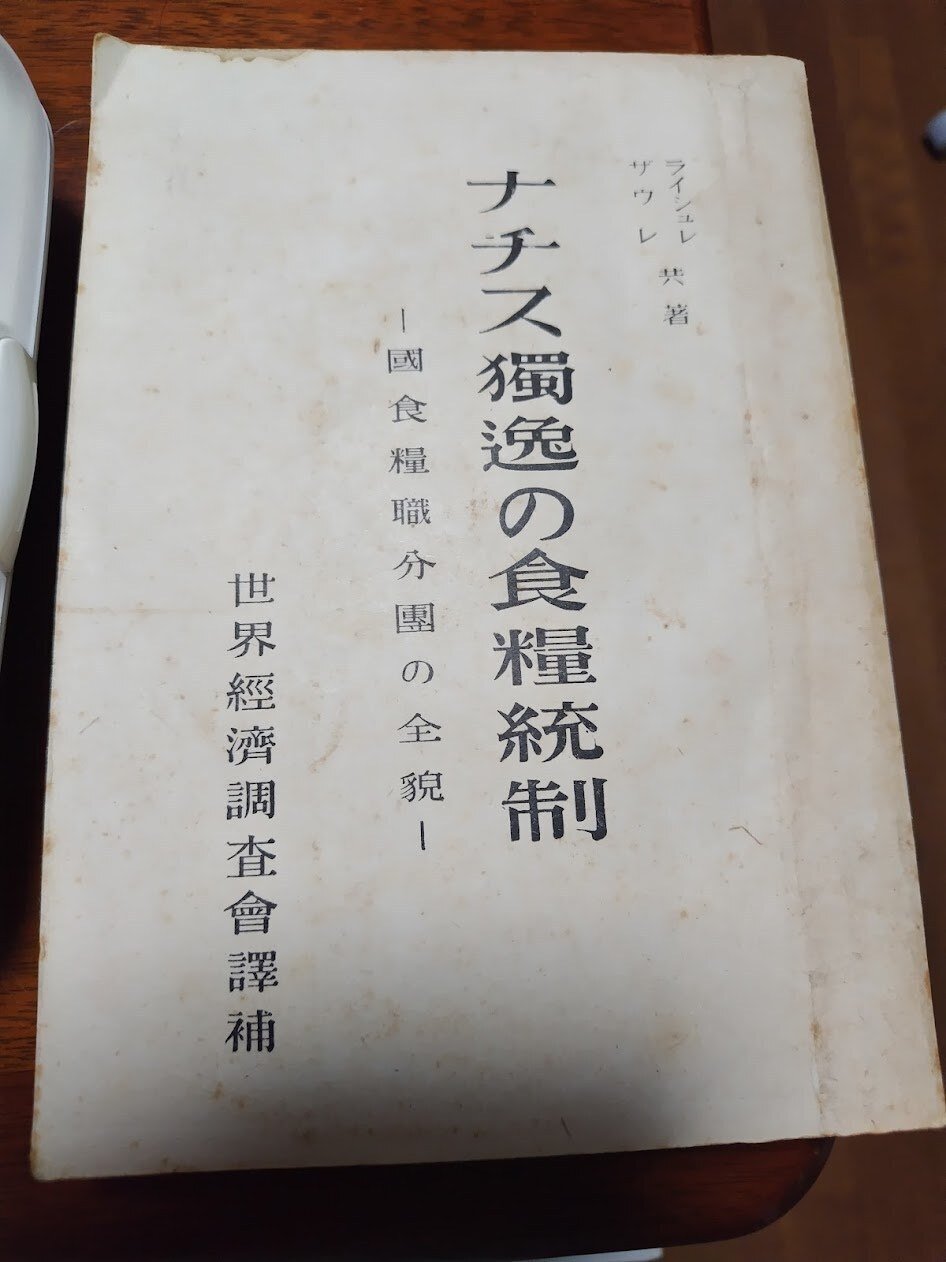 ライシュレ
ザウレ
共著
ナチス獨逸の食糧統制
―國食糧職分團の全貌―
世界經濟調査會譯補